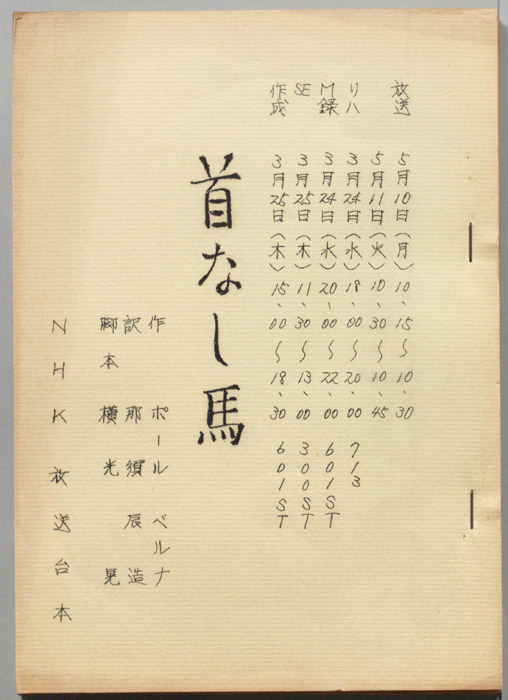 放送 5月10日(月) 10、15〜10、30
5月11日(火) 10、30〜10、45
リハ 3月24日(水) 18、00〜20、00 713
M録 3月24日(水) 20、00〜22、00 601ST
SE 3月25日(木) 11、30〜13、00 300ST
作成 3月25日(木) 15、00〜18、30 601ST
首なし馬
作 ポール ベルナ
訳 那須 辰造
脚本 横光 晃
NHK放送台本